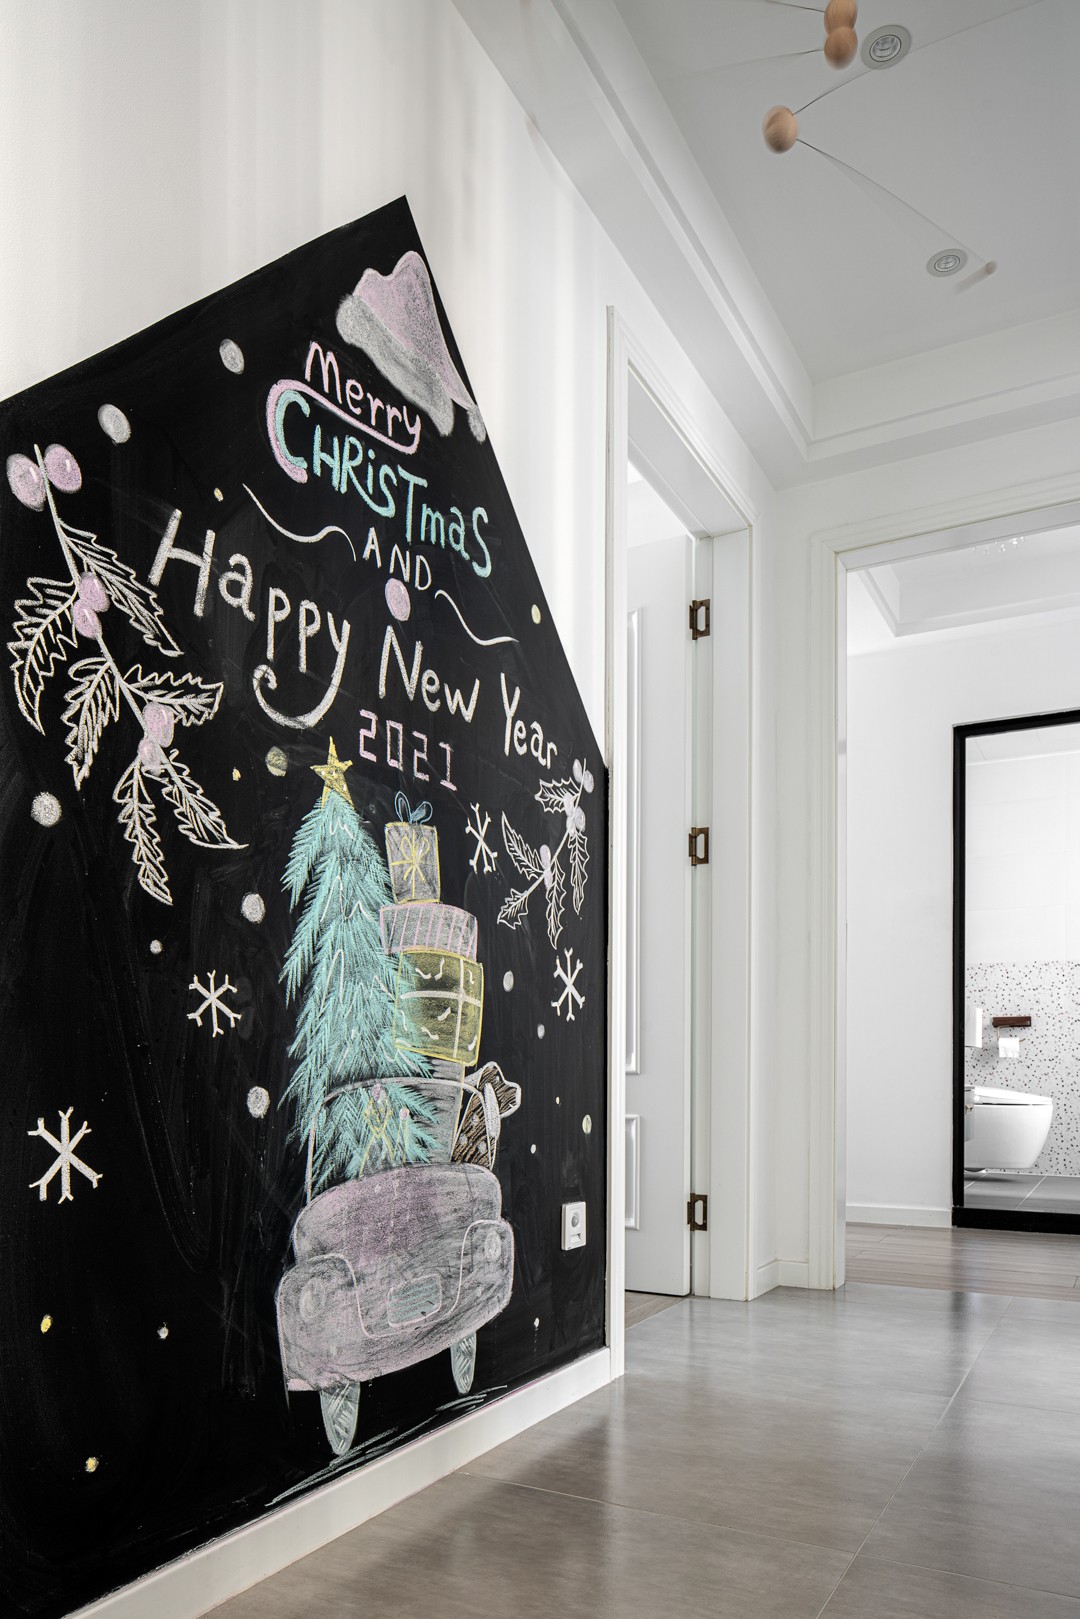 Merry
CHRiSTmaS
AND
Happy New Year
2021